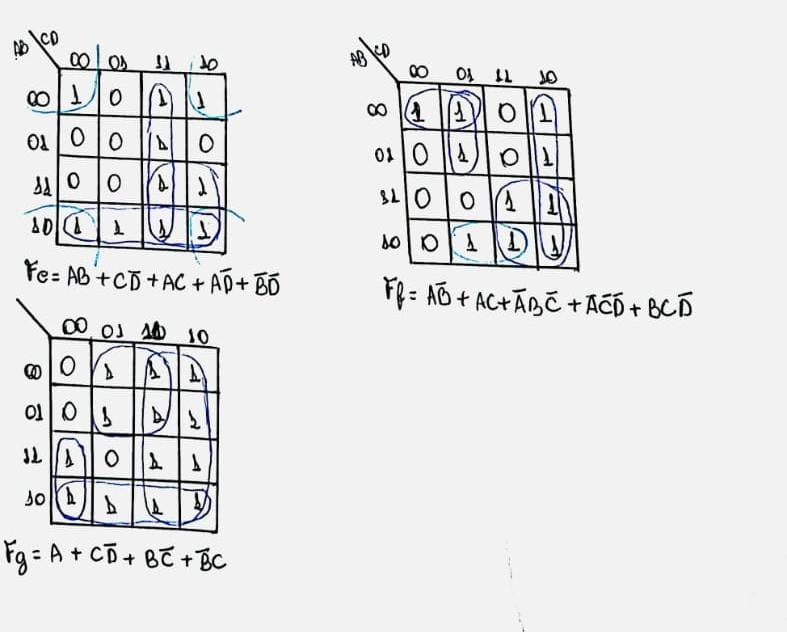 AB CD
00 01 11 10
00 1 0 1 1
01 0 0 1 0
11 0 0 1 1
10 1 1 1 1
Fe = AB + CD̅ + AC + AD̅ + B̅D̅
AB CD
00 01 11 10
00 1 1 0 1
01 0 1 0 1
11 0 0 1 1
10 0 1 1 1
Ff = AB̅ + AC + A̅BC̅ + A̅C̅D̅ + BCD̅
00 01 11 10
00 0 1 1 1
01 0 1 1 1
11 1 0 1 1
10 1 1 1 1
Fg = A + CD̅ + BC̅ + B̅C